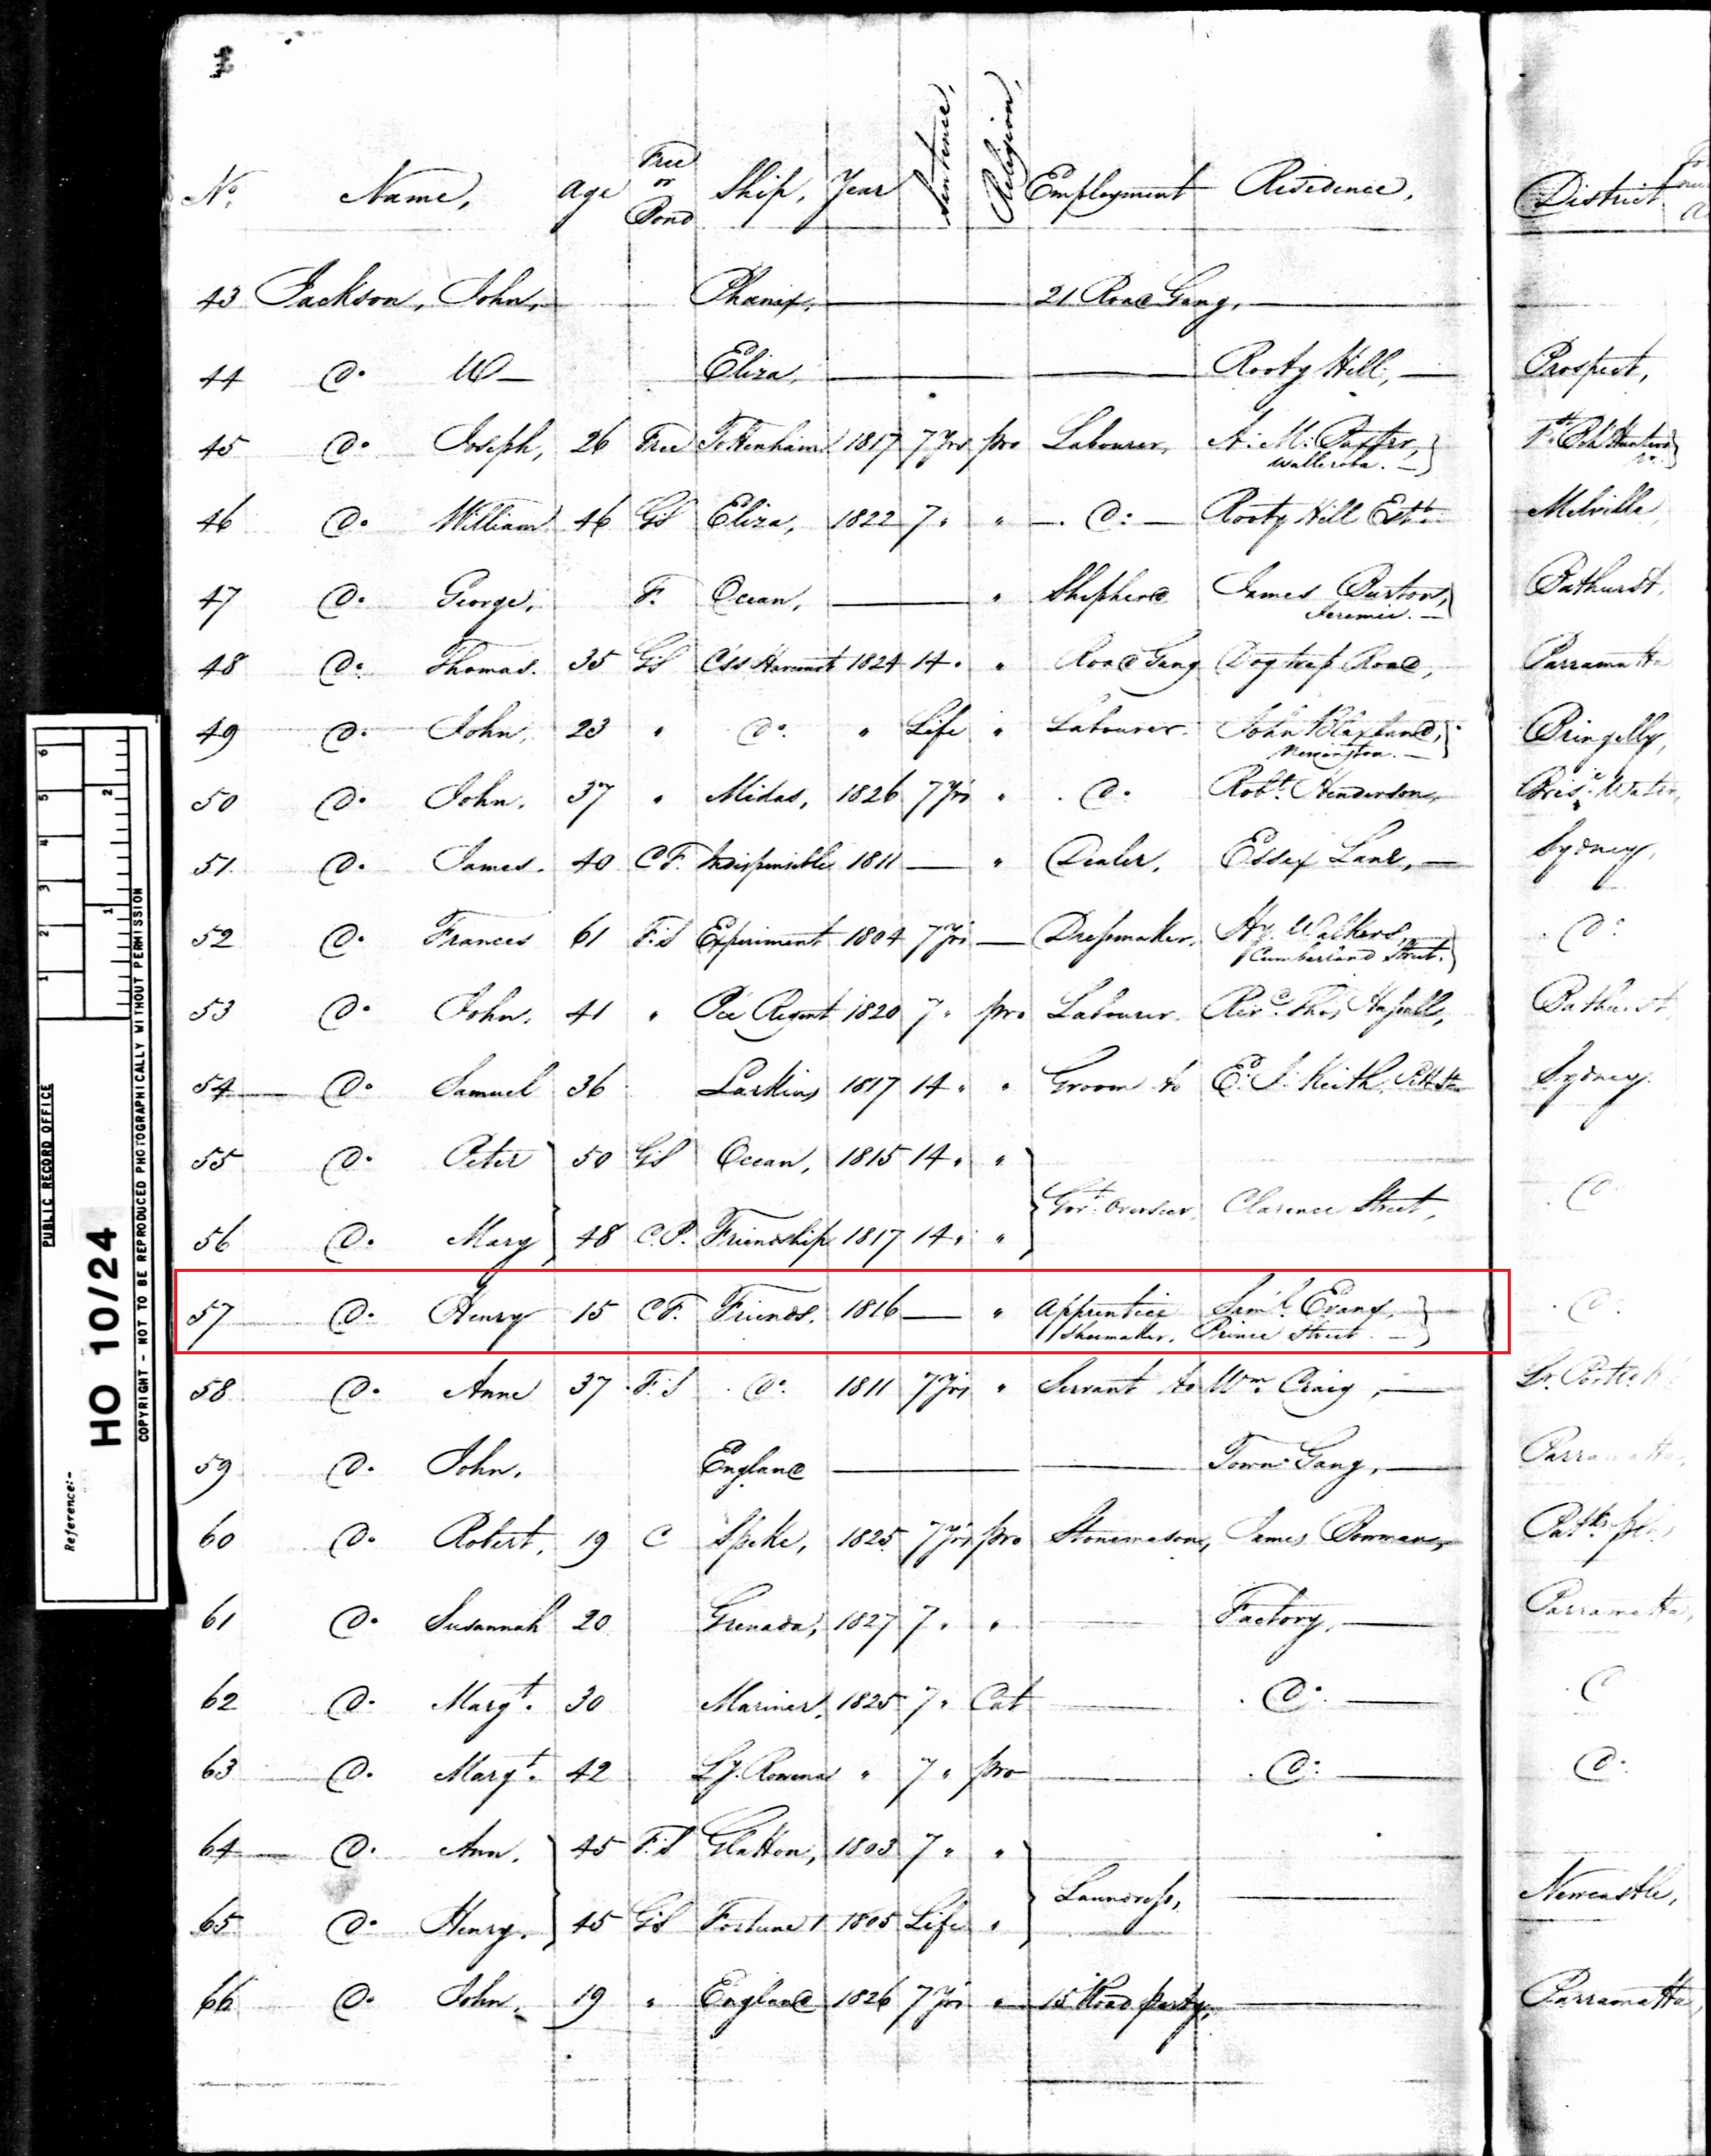 No. Name, Age Free or Bond Ship, Year Sentence, Religion, Employment Residence, District
43 Jackson, John, Phœnix, — 21 Road Gang, —
44 Do. W— Eliza, — — Rooty Hill, — Prospect,
45 Do. Joseph, 26 Free Tottenham 1817 7 Yrs pro Labourer,
Walleroba. —
46 Do. William 46 GS Eliza, 1822 7 " " — Do: — Rooty Hill Estt. Melville,
47 Do. George, F. Ocean, — " Shepherd James Burton, Bathurst,
48 Do. Thomas. 35 GS Css Harcourt 1824 14 " " Road Gang Dogtrap Road, Parramatta
49 Do. John, 23 " Do. " Life " Labourer. John Blaxland, Bringelly,
Newington. —
50 Do. John, 37 " Midas, 1826 7 Yrs " Do. Robt. Henderson, Brise. Water,
51. Do. James. 40 C F. Indispensible 1811 — " Dealer, Essex Lane, — Sydney,
52 Do. Frances 61 F.S Experiment 1804 7 Yrs — Dressmaker, Hy. Walkers, Do
Cumberland Street.
53 Do. John, 41 " Pce Regent 1820 7 " pro Labourer. Revd. Thos. Hassall, Bathurst,
54 Do. Samuel 36 Larkins 1817 14 " " Groom to E. J. Keith, Pitt St. Sydney.
55 Do. Peter 50 GS Ocean, 1815 14 " "
Govt. Overseer, Clarence Street, Do
56 Do. Mary 48 C.P. Friendship 1817 14 " "
57 Do. Henry 15 C F. Friends. 1816 — " Apprentice Saml. Evans, Do.
Shoemaker. Prince Street. —
58 Do. Anne 37 F.S Do. 1811 7 Yrs " Servant to Wm. Craig, —
59 Do. John. England — — Town Gang, — Parramatta,
60 Do. Robert, 19 C Speke, 1825 7 Yrs pro Stonemason, James Bowman,
61 Do. Susannah 20 Grenada, 1827 7 " " — Factory, — Parramatta,
62 Do. Margt. 30 Mariner, 1825 7 " Cat — Do. — Do
63 Do. Margt. 42 Ly. Rowena " 7 " pro — Do: — Do.
64 Do. Ann. 45 F.S Glatton, 1803 7 " "
Laundress, — Newcastle,
65 Do. Henry. 45 GS Fortune 1 1805 Life "
66 Do. John. 19 " England 1826 7 Yrs " 15 Road party, — Parramatta,
PUBLIC RECORD OFFICE
Reference:-
HO 10/24
COPYRIGHT - NOT TO BE REPRODUCED PHOTOGRAPHICALLY WITHOUT PERMISSION
1 2 3 4 5 6
1 2